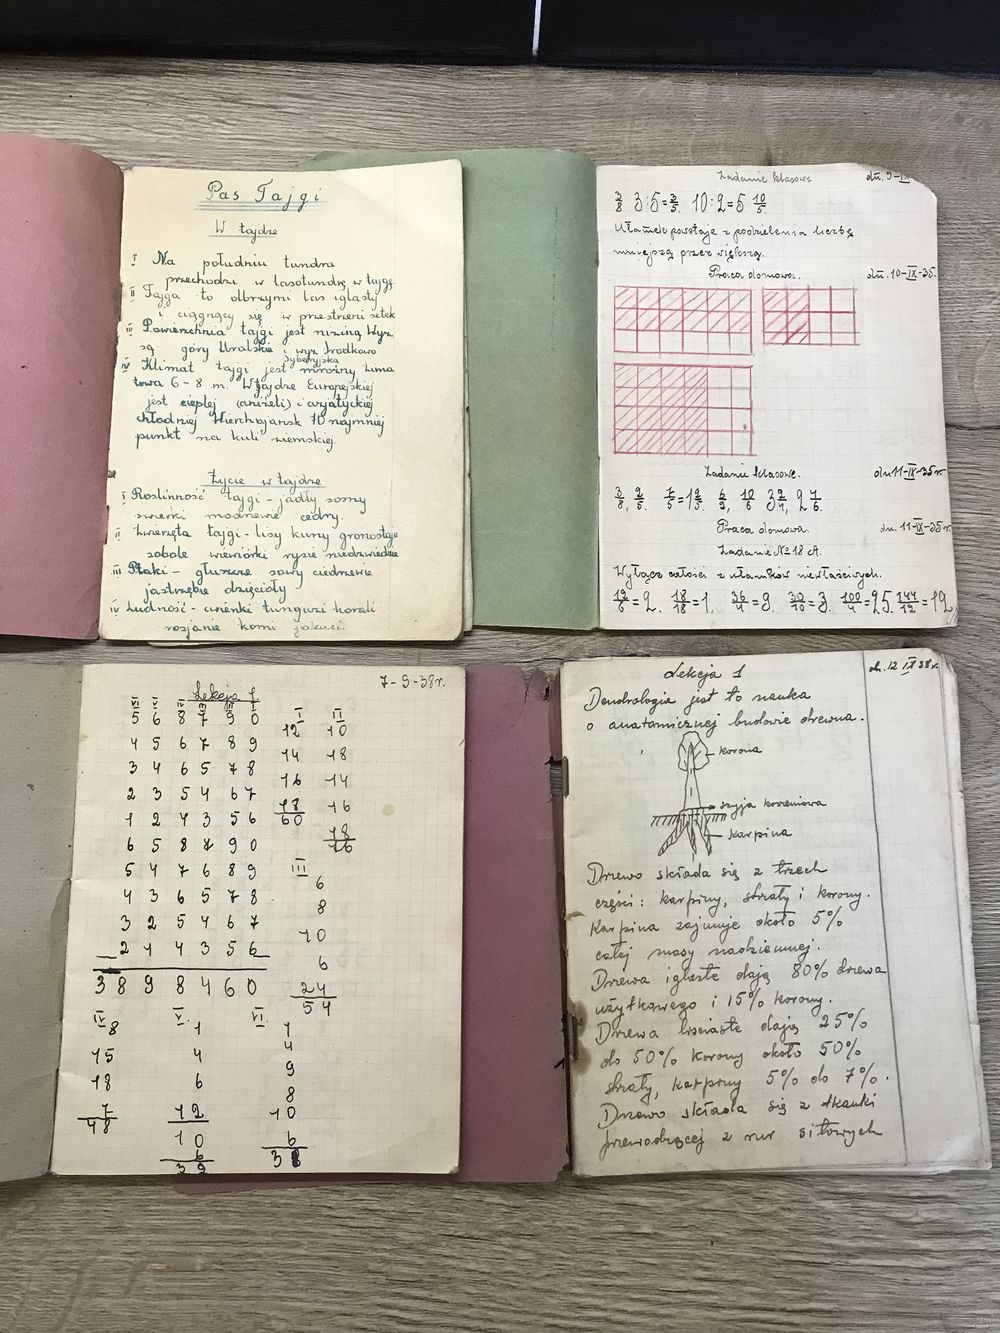 Pas Tajgi
W tajdze
I Na południu tundra
przechodzi w lasotundrę w tajgę
II Tajga to olbrzymi las iglasty
i ciągnący się w przestrzeni setek
III Powierzchnia tajgi jest niziną Wyż.
są góry Uralskie i wyż Środkowo
Syberyjska
IV Klimat tajgi jest mroźny zima
trwa 6-8 m. W tajdze Europejskiej
jest cieplej (aniżeli) i azjatyckiej
chłodniej Wierchojańsk najmniej
punkt na kuli ziemskiej.
Życie w tajdze
I Roślinność tajgi - jadły sosny
świerki modrzewie cedry.
II Zwierzęta tajgi - lisy kuny gronostaje
sobole wiewiórki rysie niedźwiedzie
III Ptaki - głuszce sowy
jastrzębie dzięcioły
IV Ludność - tunguzi
rosjanie komi jakuci
Zadanie klasowe dn. 9-
3/8 3:5=3/5. 10:2=5 10/5.
Ułamek powstaje z podzielenia liczbę
mniejszą przez większą.
Praca domowa. dn. 10-IX-35.
Zadanie klasowe. dn. 11-IX-35r.
3/8, 2/5. 7/5=1 2/5. 6/9, 10/6 3 2/4, 2 7/6.
Praca domowa. dn. 11-IX-35r.
Zadanie № 18 A.
Wyłącz całości z ułamków niewłaściwych.
12/6=2. 18/18=1. 36/4=9. 30/10=3. 100/4=25. 144/12=12.
Lekcja 1 7-9-38r.
VI V IV III II I
5 6 8 7 9 0
4 5 6 7 8 9
3 4 6 5 7 8
2 3 5 4 6 7
1 2 4 3 5 6
6 5 8 7 9 0
5 4 7 6 8 9
4 3 6 5 7 8
3 2 5 4 6 7
2 1 4 3 5 6
3 8 9 8 4 6 0
I II
12 10
14 18
16 14
18 16
60 18
76
III
6
8
10
6
24
54
IV V VI
8 1 1
15 4 4
18 6 9
7 12 8
48 10 10
6 6
39 38
Lekcja 1 dn. 12 IX 38r.
Dendrologia jest to nauka
o anatomicznej budowie drewna.
korona
szyja korzeniowa
karpina
Drzewo składa się z trzech
części: karpiny, strzały i korony.
Karpina zajmuje około 5%
całej masy nadziemnej.
Drzewa iglaste dają 80% drzewa
użytkowego i 15% korony.
Drzewa liściaste dają 25%
do 50% korony około 50%
strzały, karpiny 5% do 7%.
Drzewo składa się z tkanki
przewodzącej z rur sitowych